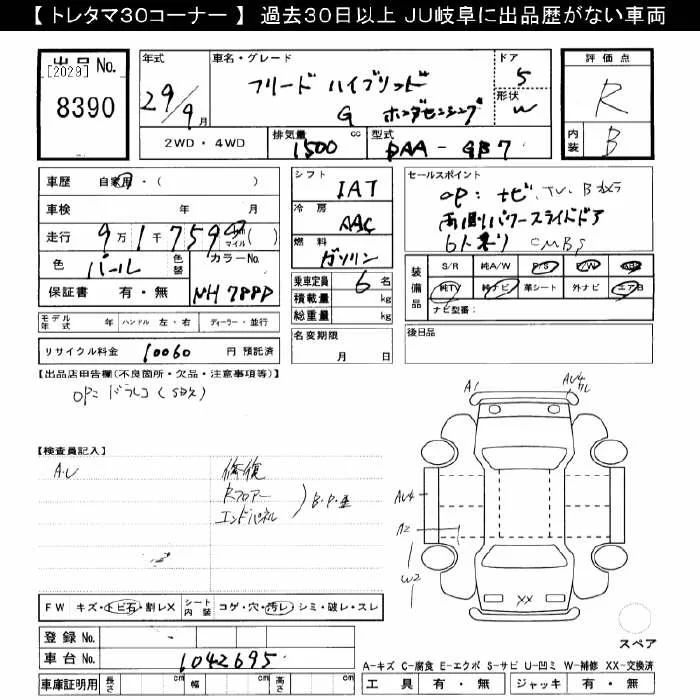 【 トレタマ30コーナー 】 過去30日以上 JU岐阜に出品歴がない車両
出品 No.
[2029]
8390
年式
29/9月
車名・グレード
フリード ハイブリッド
G ホンダセンシング
ドア
5
形状
W
2WD・4WD
排気量 1500 cc
型式 DAA - GB7
評価点
R
内装
B
車歴 自家用・( )
車検 年 月
走行 9万1千759 km マイル ( )
色 パール
色替
カラーNo. NH788P
保証書 有・無
シフト IAT
冷房 AAC
燃料 ガソリン
乗車定員 6 名
積載量 kg
総重量 kg
セールスポイント
OP: ナビ, TV, Bカメラ
両側パワースライドドア
6人乗り CMBS
装備品
S/R 純A/W P/S P/W
純TV 純ナビ 革シート 外ナビ エアB
ナビ型番:
モデル年式 年 ハンドル 左・右 ディーラー・並行
リサイクル料金 10060 円 預託済
名変期限
月 日
後日品
【出品店申告欄(不良箇所・欠品・注意事項等)】
OP: ドラレコ
【検査員記入】
A・U
修復
Rフロアー
エンドパネル
B・P・歪
A1
AU4
AU4
A2
W2
XX
FW キズ・トビ石・割レX
シート内装 コゲ・穴・汚レ・シミ・破レ・スレ
登録 No. -
車台 No. 1042695
車庫証明用 長さ cm 幅 cm 高さ cm
スペア
A-キズ C-腐食 E-エクボ S-サビ U-凹ミ W-補修 XX-交換済
工具 有・無 ジャッキ 有・無